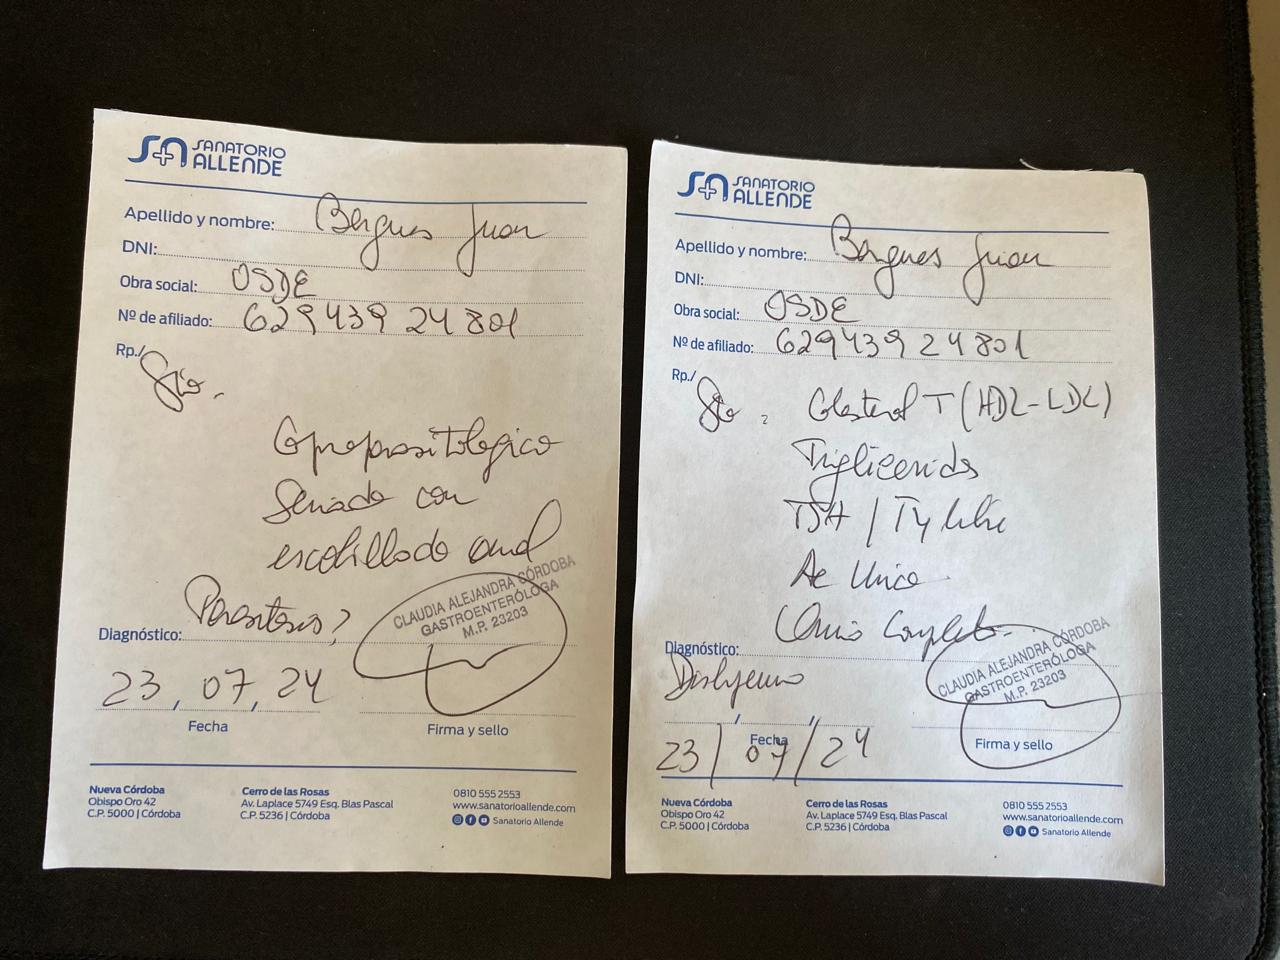 SANATORIO
ALLENDE
Apellido y nombre: Bergues Juan
DNI:
Obra social: OSDE
Nº de afiliado: 629439 24 801
Rp./
Coproparasitologico
Seriado con
escobillado anal
Parasitosis?
Diagnóstico:
CLAUDIA ALEJANDRA CÓRDOBA
GASTROENTERÓLOGA
M.P. 23203
23, 07, 24
Fecha
Firma y sello
Nueva Córdoba
Obispo Oro 42
C.P. 5000 | Córdoba
Cerro de las Rosas
Av. Laplace 5749 Esq. Blas Pascal
C.P. 5236 | Córdoba
0810 555 2553
www.sanatorioallende.com
Sanatorio Allende
SANATORIO
ALLENDE
Apellido y nombre: Bergues Juan
DNI:
Obra social: OSDE
Nº de afiliado: 629439 24801
Rp./ Colesterol T (HDL-LDL)
Trigliceridos
TSH / T4 libre
Ac Urico
Orina Completa
Diagnóstico:
CLAUDIA ALEJANDRA CÓRDOBA
GASTROENTERÓLOGA
M.P. 23203
Fecha
23/07/24
Firma y sello
Nueva Córdoba
Obispo Oro 42
C.P. 5000 | Córdoba
Cerro de las Rosas
Av. Laplace 5749 Esq. Blas Pascal
C.P. 5236 | Córdoba
0810 555 2553
www.sanatorioallende.com
Sanatorio Allende